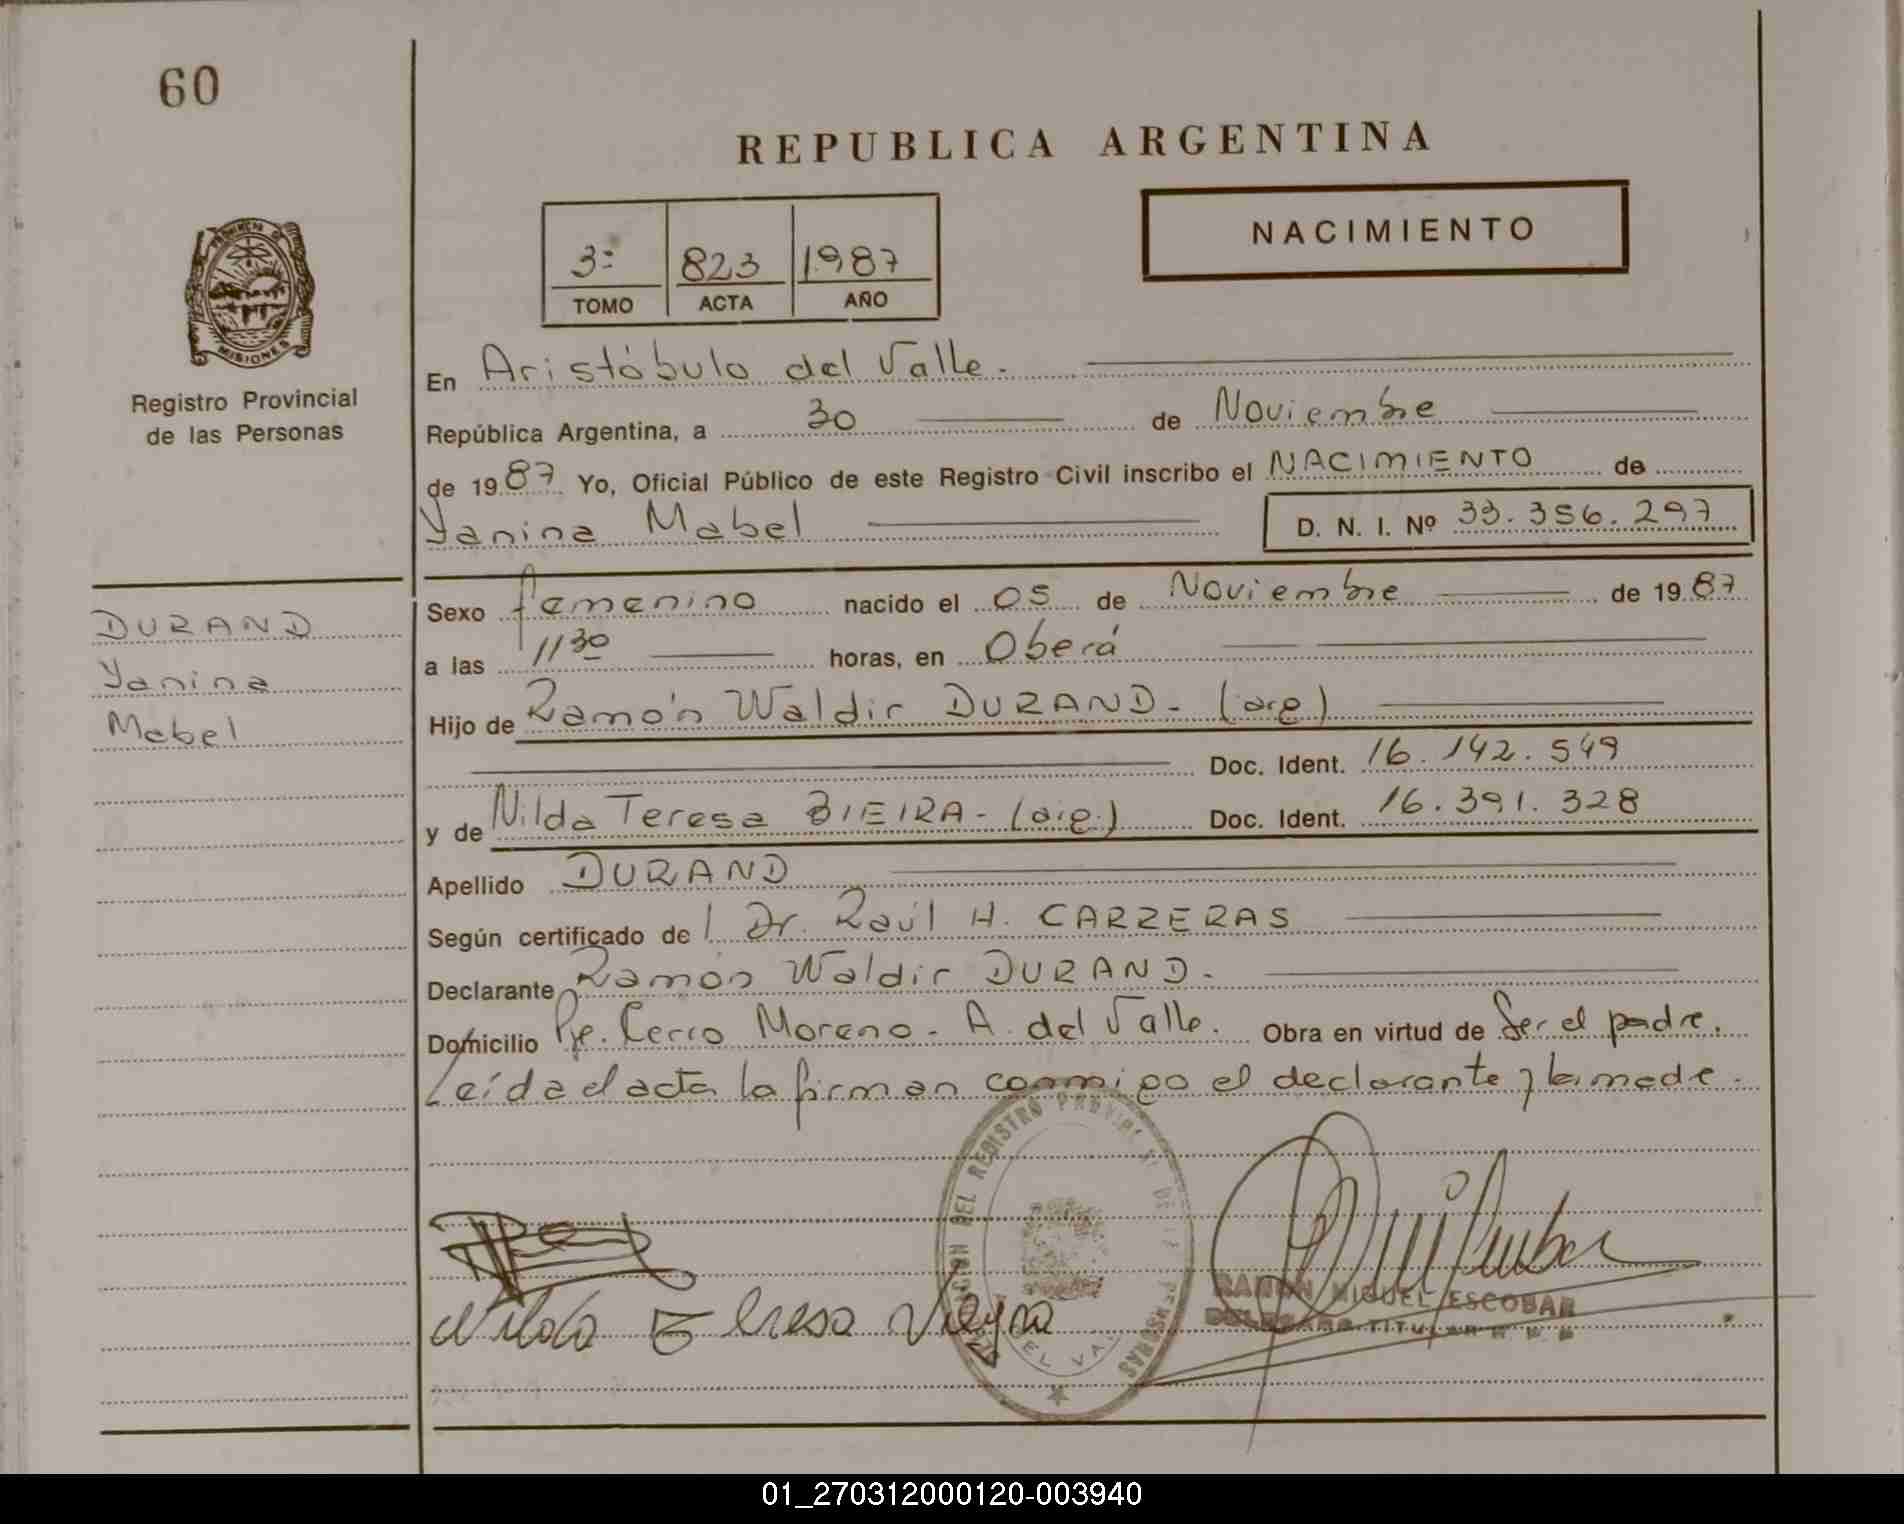 60
REPUBLICA ARGENTINA
NACIMIENTO
3º 823 1987
TOMO ACTA AÑO
PROVINCIA DE
MISIONES
Registro Provincial
de las Personas
En Aristóbulo del Valle.
República Argentina, a 30 de Noviembre
de 1987 Yo, Oficial Público de este Registro Civil inscribo el NACIMIENTO de
Yanina Mabel D. N. I. Nº 33.356.297
DURAND
Yanina
Mabel
Sexo femenino nacido el 05 de Noviembre de 1987
a las 11 30 horas, en Oberá
Hijo de Ramón Waldir DURAND - (arg)
Doc. Ident. 16.142.549
y de Nilda Teresa BIEIRA - (arg.) Doc. Ident. 16.391.328
Apellido DURAND
Según certificado del Dr. Raúl H. CARRERAS
Declarante Ramón Waldir DURAND.
Domicilio Pje. Cerro Moreno - A. del Valle. Obra en virtud de Ser el padre.
Leída el acta la firman conmigo el declarante y la madre.
DEL REGISTRO PROVINCIAL DE LAS PERSONAS
DEL VALLE
Nilda Teresa Vieyra
RAMON MIGUEL ESCOBAR
DELEGADO TITULAR
01_270312000120-003940